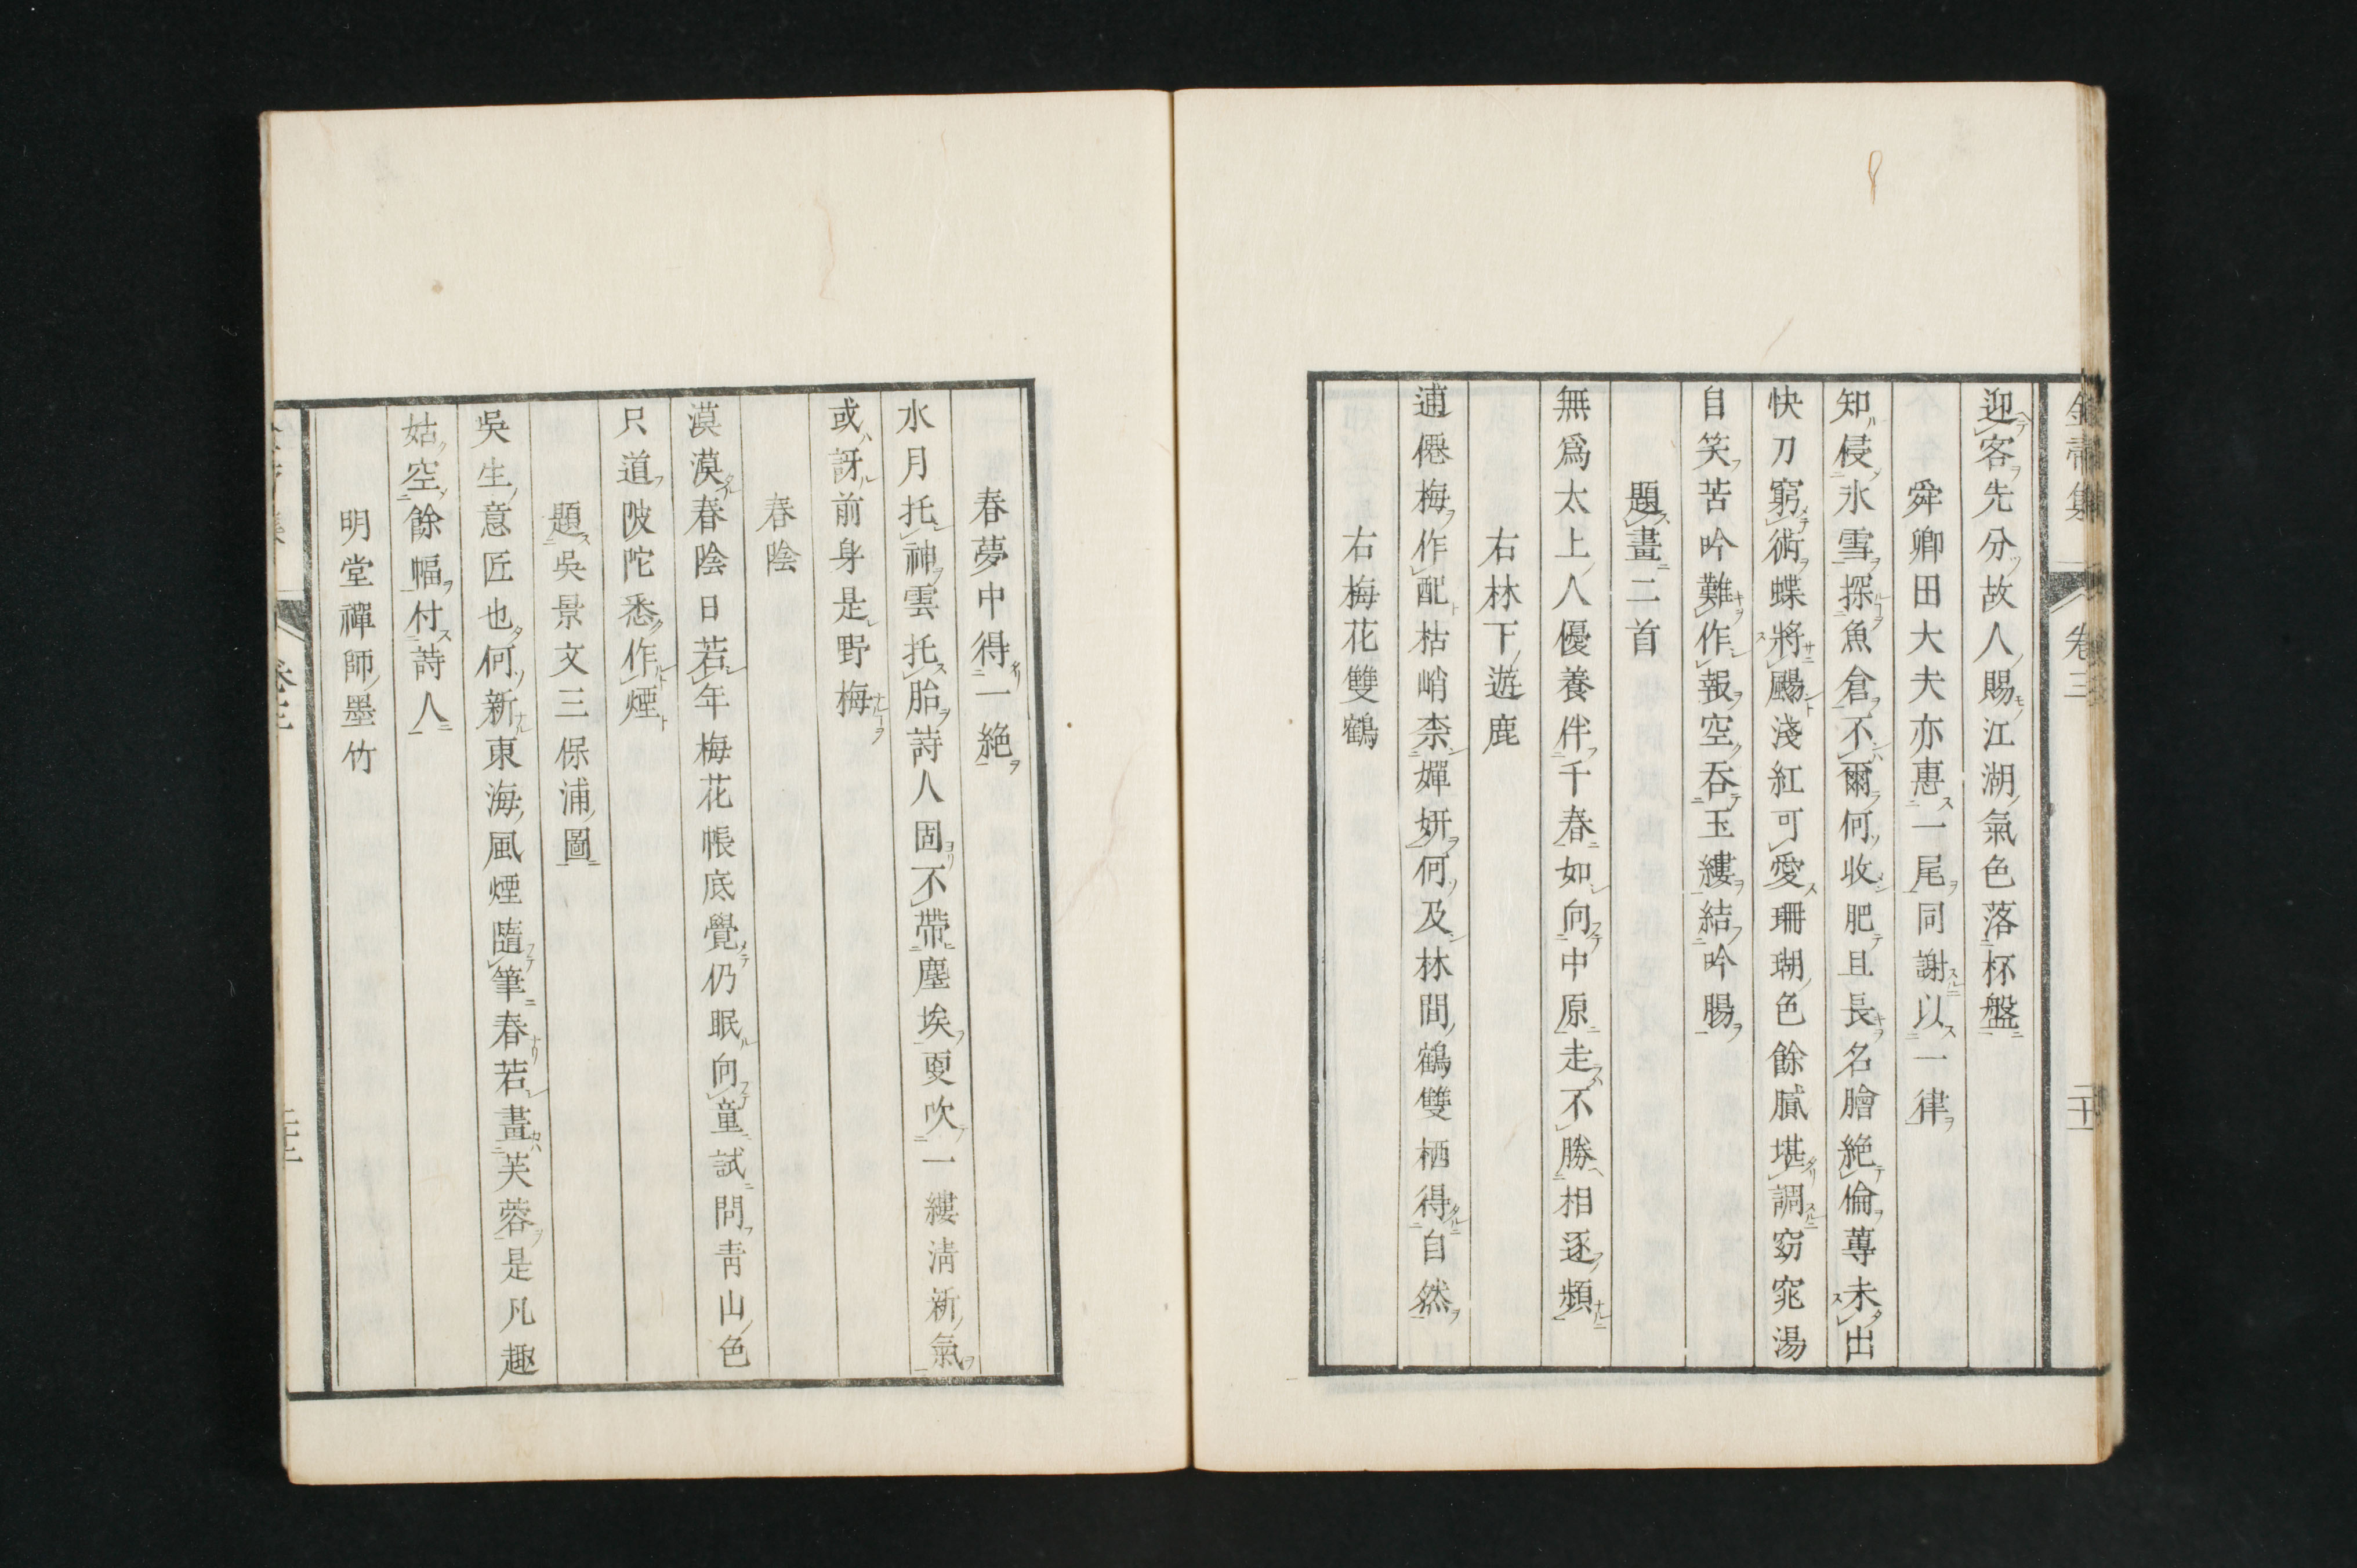 迎客先分故人賜江湖氣色落杯盤
舜卿田大夫亦惠一尾同謝以一律
知侵氷雪探魚倉不爾何收肥且長名膾絶倫蓴未出
快刀窮術蝶將颺淺紅可愛珊瑚色餘膩堪調窈窕湯
自笑苦吟難作報空吞玉縷結吟腸
題畫二首
無爲太上人優養伴千春如向中原走不勝相逐頻
右林下遊鹿
逋僊梅作配枯峭柰嬋妍何及林間鶴雙栖得自然
右梅花雙鶴
春夢中得一絶
水月托神雲托胎詩人固不帶塵埃更吹一縷淸新氣
或訝前身是野梅
春陰
漠漠春陰日若年梅花帳底覺仍眠向童試問靑山色
只道陂陀悉作煙
題吳景文三保浦圖
吳生意匠也何新東海風煙隨筆春若畫芙蓉是凡趣
姑空餘幅付詩人
明堂禪師墨竹
卷三
二十一